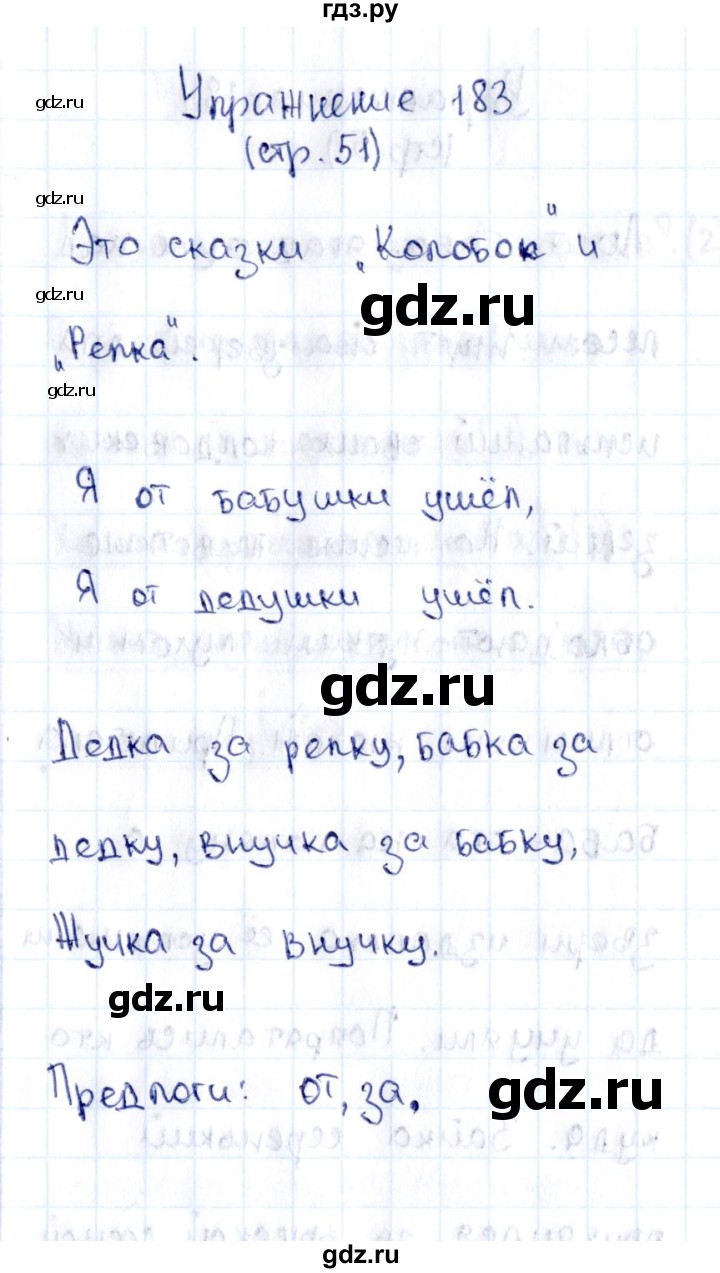 гдз.ру
Упражнение 183
gdz.ru
(стр. 51)
gdz.ru
Это сказки „Колобок" и
gdz.ru
gdz.ru
„Репка".
gdz.ru
Я от бабушки ушёл,
Я от дедушки ушёл.
gdz.ru
Дедка за репку, бабка за
дедку, внучка за бабку,
Жучка за внучку.
gdz.ru
Предлоги: от, за.
gdz.ru
gdz.ru